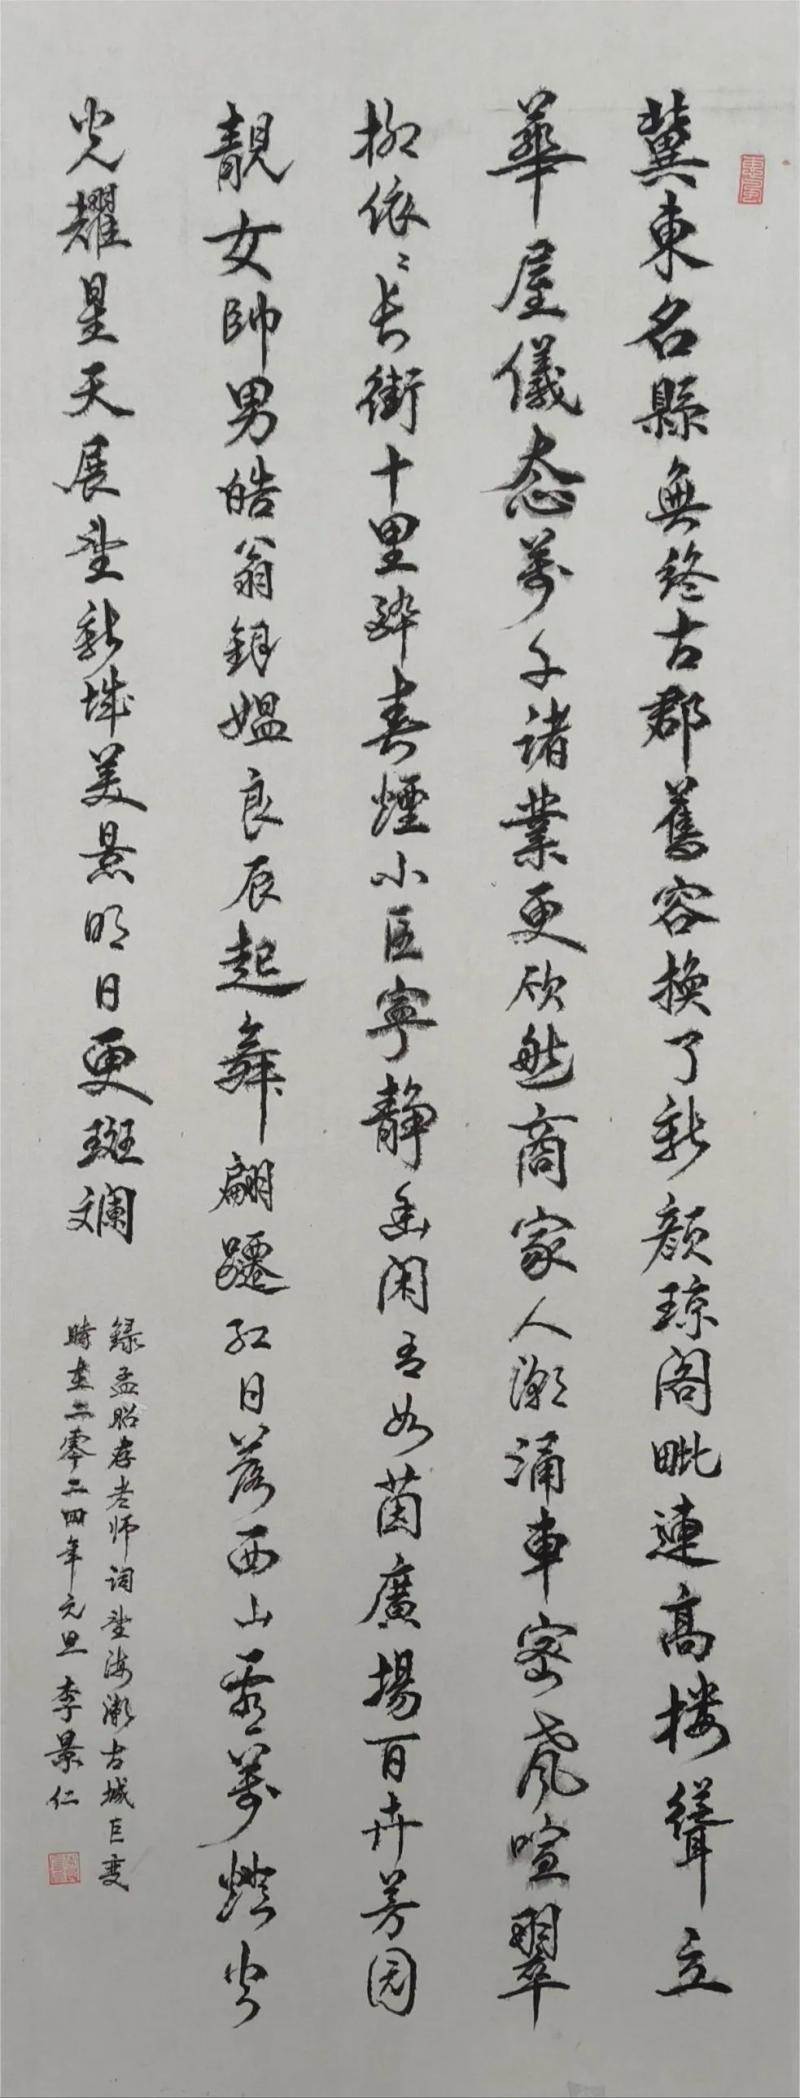 冀東名縣無終古郡舊容換了新顏琼阁毗連高楼聳立
華屋儀态萬千諸業更欣然商家人潮涌車密歲喧翠
柳依〻长街十里醉春煙小区寧静幽闲有如茵廣場百卉芳园
靚女帥男皓翁銀媪良辰起舞翩躚红日落西山看萬燈火
光耀星天展望新城美景明日更斑斓
録孟昭存老师词望海潮古城巨变
時在二零二四年元旦李景仁